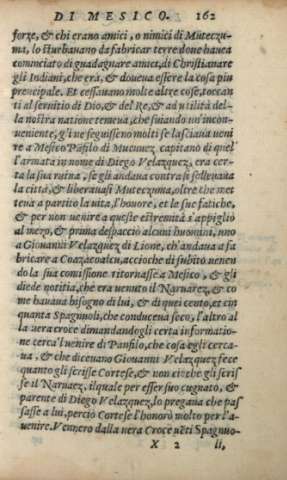 DI MESICO. 162
forze, & chi erano amici, o nimici di Muteczu-
ma, lo sturbauano da fabricar terre doue haueа
cominciato di guadagnare amici, di Christianare
gli Indiani, che era, & doueua essere la cosa piu
prencipale. Et cessauano molte altre cose, toccan
ti al seruitio di Dio, & del Re, & ad vtilità del-
la nostra natione temeua, che suiando un'incon-
ueniente, gli ne seguissero molti se lasciaua veni
re a Mesico Pāfilo di capitanò di quel
l'armata in nome di Diego Velazquez, era cer-
ta la sua ruina, se gli andaua contra si solleuaua
la città, & liberauasi Muteczuma, oltre che met
teua a partito la vita, l'honore, et le sue fatiche,
& per non uenire a queste estremità s'appigliò
al mezo, & prima despacciò alcuni huomini, uno
a Giouanni Velazquez di Lione, ch'andaua a fa
bricare a Coazacoalcu, accioche di subito uenen
do la sua comissione ritornasse a Mesico, & gli
diede notitia, che era uenuto il Naruaez, & co
me haueua bisogno di lui, & di quei cento, et cin
quanta Spagnuoli, che conduceua seco, l'altro al
la uera croce dimandandogli certa informatio-
ne cerca'l uenire di Panfilo, che cosa egli cerca-
ua, & che diceuano Giouanni Velazquez fece
quanto gli scrisse Cortese, & non cioche gli scris
se il Naruaez, ilquale per esser suo cugnato, &
parente di Diego Velazquez, lo pregaua che pas
sasse a lui, perciò Cortese l'honorò molto per l'a-
uenire. Vennero dalla uera Croce uēti Spagnuo-
X 2 li,